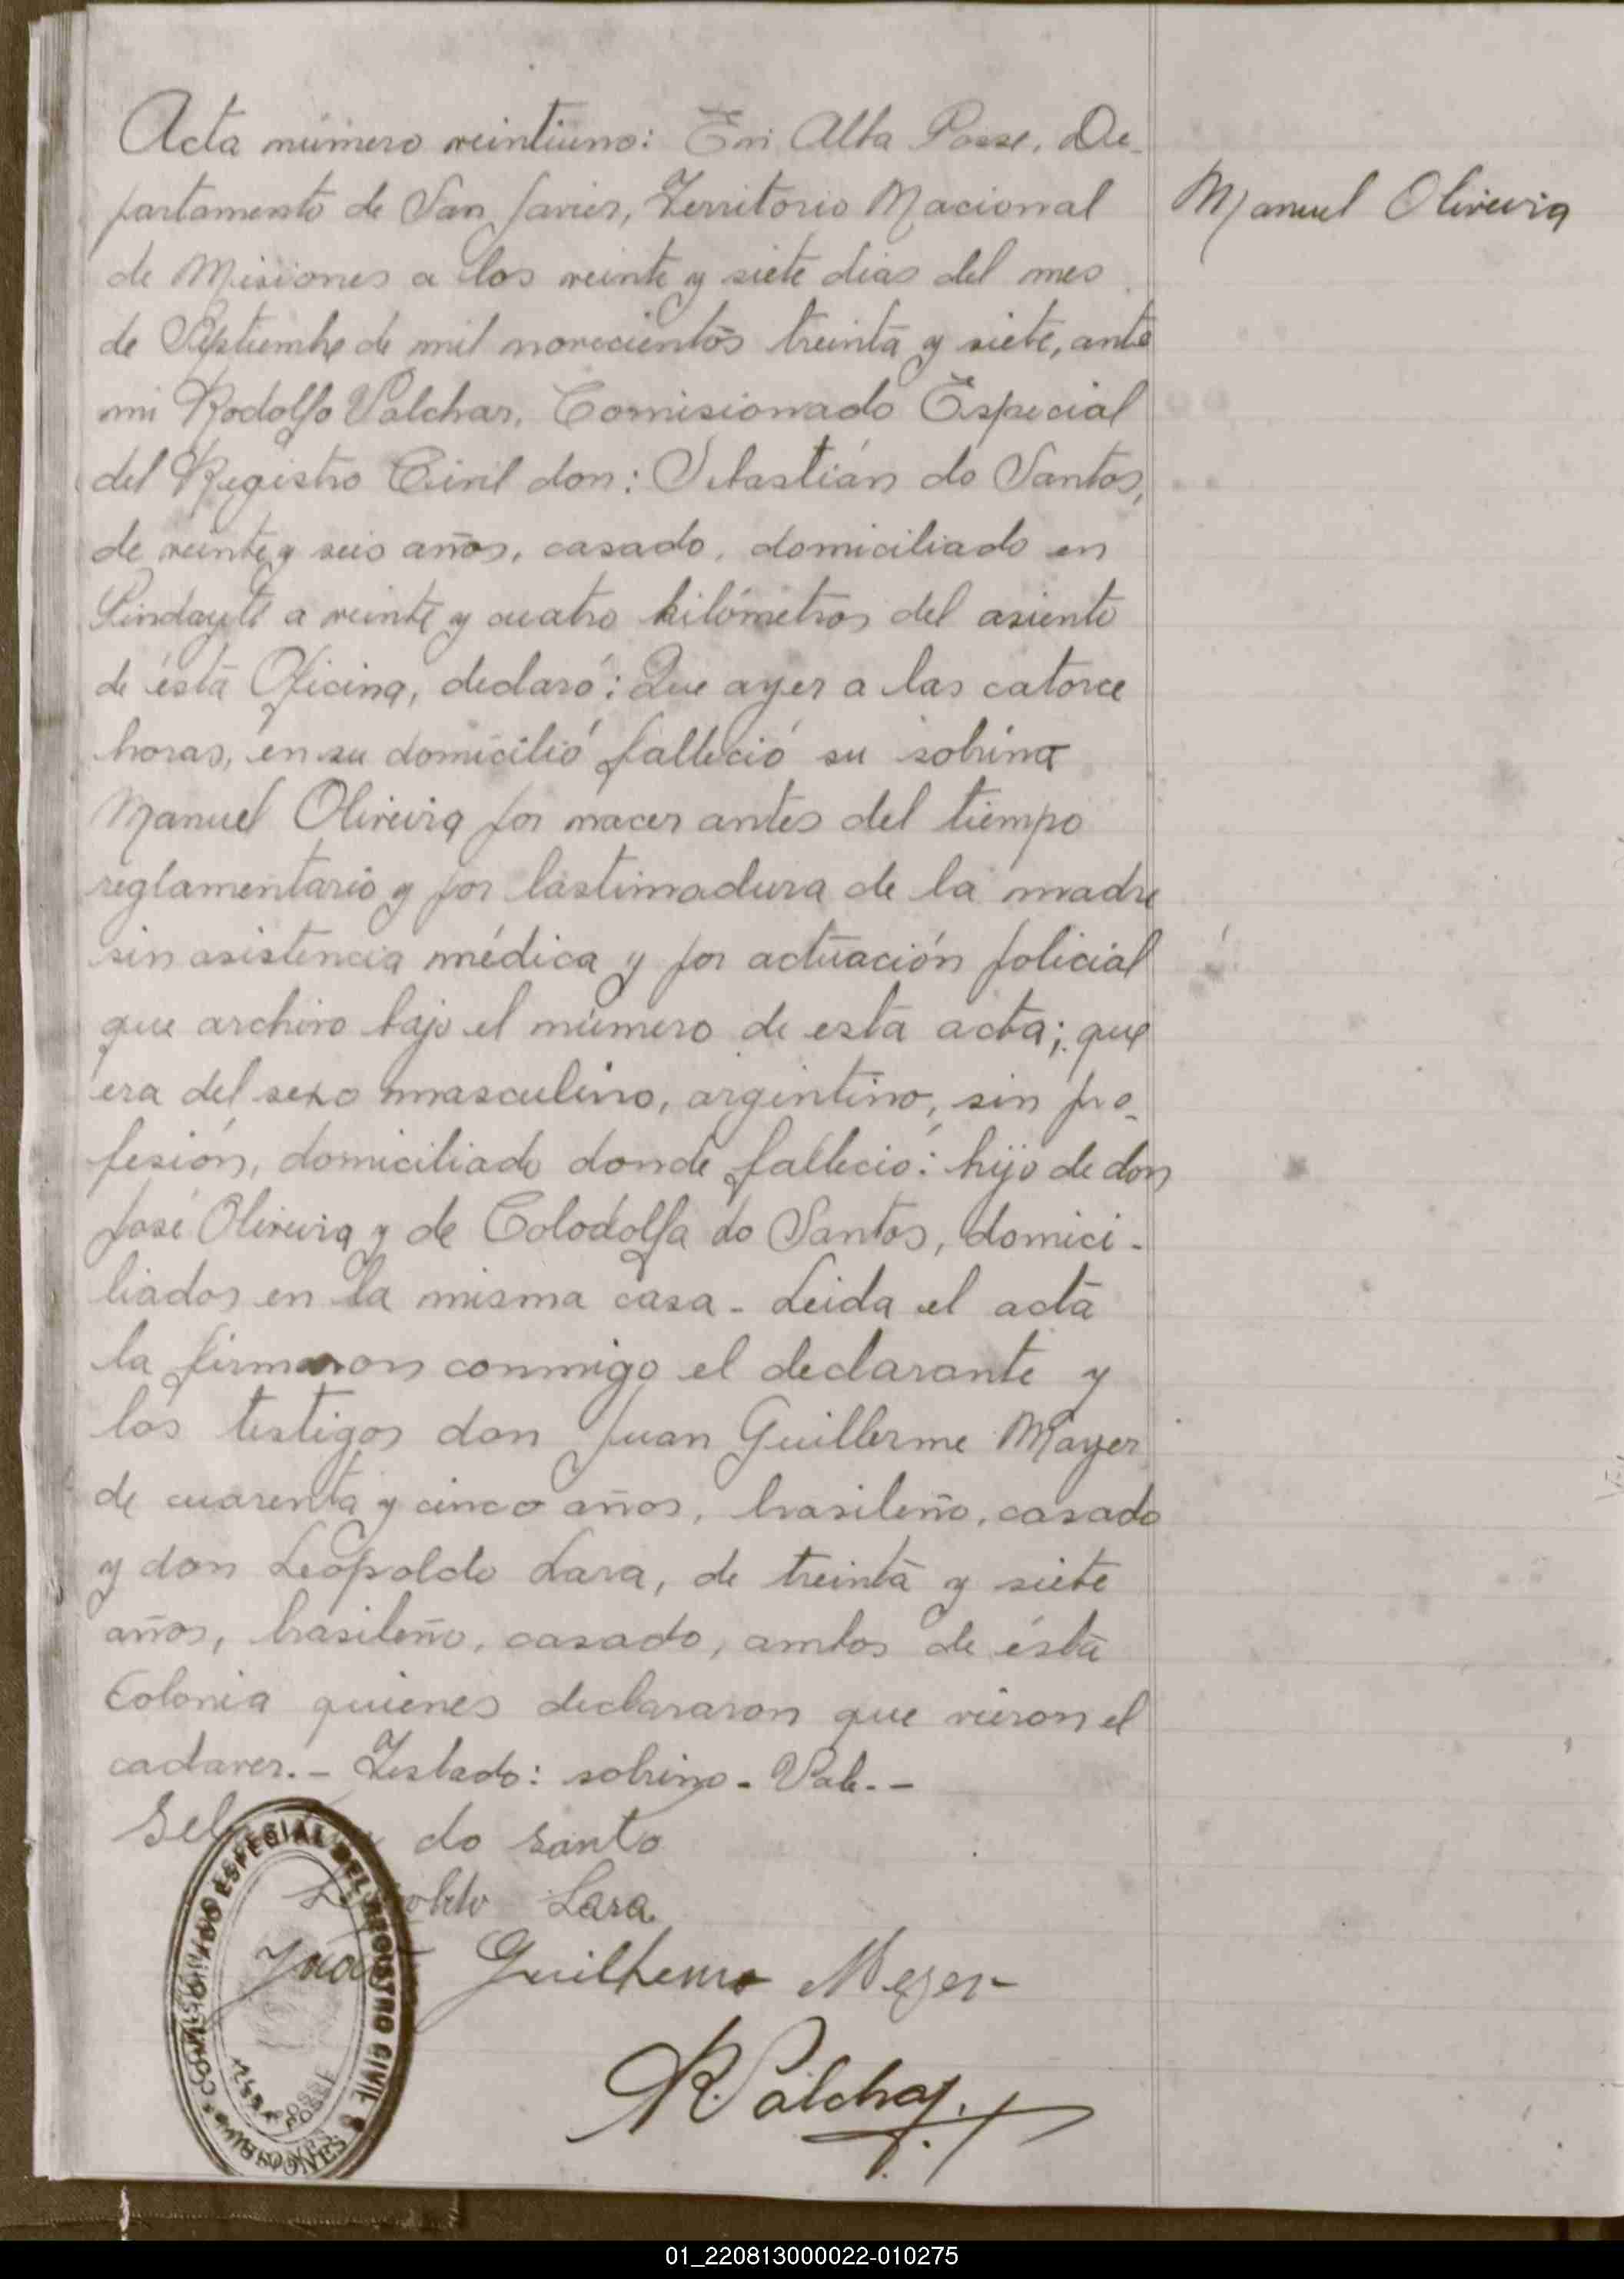 Acta número veintiuno: En Alba Posse, De-
partamento de San Javier, Territorio Nacional
de Misiones a los veinte y siete dias del mes
de Septiembre de mil novecientos treinta y siete, ante
mi Rodolfo Palchar, Comisionado Especial
del Registro Civil don: Sebastián do Santos,
de veinte y seis años, casado, domiciliado en
a veinte y cuatro kilómetros del asiento
de ésta Oficina, declaró: Que ayer a las catorce
horas, en su domicilió falleció su sobrino
Manuel Oliveira por nacer antes del tiempo
reglamentario y por lastimadura de la madre
sin asistencia médica y por actuación policial
que archivo bajo el número de esta acta; que
era del sexo masculino, argentino, sin pro-
fesión, domiciliado donde falleció: hijo de don
José Oliveira y de Colodolfa do Santos, domici-
liados en la misma casa - Leida el acta
la firmaron conmigo el declarante y
los testigos don Juan Guillerme Mayer
de cuarenta y cinco años, brasileño, casado
y don Leopoldo Lara, de treinta y siete
años, brasileño, casado, ambos de ésta
Colonia quienes declararon que vieron el
cadaver. - Testado: sobrino - Vale. -
do Santo
Leopoldo Lara
Juan Guilhermo Meyer
R. Palchar
COMISIONADO ESPECIAL DEL REGISTRO CIVIL
ALBA POSSE
MISIONES
Manuel Oliveira
01_220813000022-010275